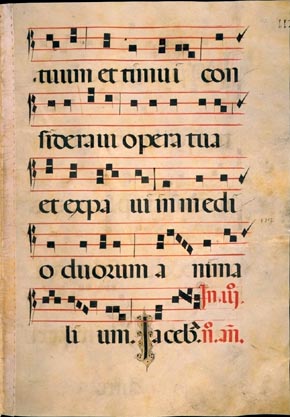 tuum et timui con
sideraui opera tua
et expa ui in medi
o duorum a nima
li um. Iaceb.